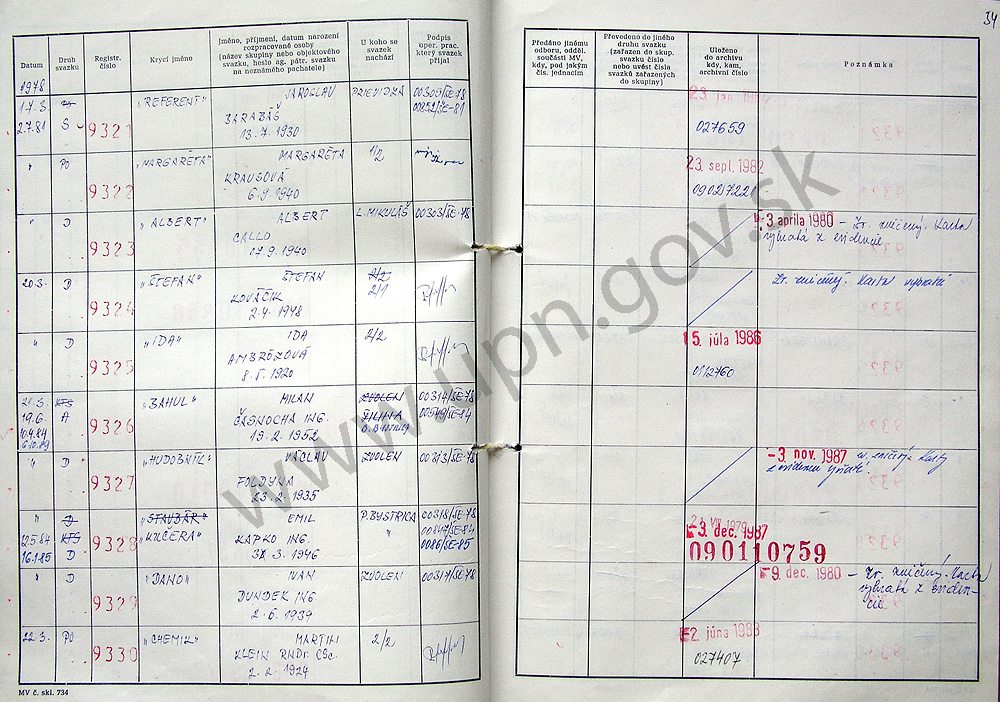 34
Datum
Druh svazku
Registr. číslo
Krycí jméno
Jméno, příjmení, datum narození
rozpracované osoby
(název skupiny nebo objektového
svazku, heslo ag. pátr. svazku
na neznámého pachatele)
U koho se
svazek
nachází
Podpis
oper. prac.
který svazek
přijal
Předáno jinému
odboru, odděl.
součásti MV,
kdy, pod jakým
čís. jednacím
Převedeno do jiného
druhu svazku
(zařazen do skup.
svazku číslo
nebo uvést čísla
svazků zařazených
do skupiny)
Uloženo
do archívu
kdy, kam,
archivní číslo
Poznámka
1978
17.3. "REFERENT" JAROSLAV PRIEVIDZA 00309/SE-78
2.7.81 S 9321 BARABÁŠ 00252/SE-81
13.7.1930
027659
" PO "MARGARÉTA" MARGARÉTA 2/2
9322 KRAUSOVÁ
6.9.1940
23. sept. 1982
090127221
" D "ALBERT" ALBERT L. MIKULÁŠ 00303/SE-78
9323 CALLO
17.9.1940
3. apríla 1980 – Zv. zničený. Karta
vybratá z evidencie
20.3. D "ŠTEFAN" ŠTEFAN 2/2
9324 KOVÁČIK 2/1
2.4.1948
Zv. zničený. Karta vybratá
" D "IDA" IDA 2/2
9325 AMBRÓZOVÁ
8.5.1920
15. júla 1986
0112760
21.3. KTS "BAHUL" MILAN ZVOLEN 00314/SE-78
19.6. A 9326 ČASNOCHA ING. ŽILINA 00549/SE-84
10.4.84 19.2.1952
" D "HUDOBNÍK" VÁCLAV ZVOLEN 00313/SE-78
9327 FOLDYNA
23.2.1935
-3. nov. 1987
" D "STAUBÁR" EMIL P. BYSTRICA 00318/SE-78
12.5.84 KTS 9328 "KUČERA" KAPKO ING. " 00847/SE-84
16.1.85 D 3.1946 0086/SE-85
-3. dec. 1987
090110759
" D "DANO" IVAN ZVOLEN 00317/SE-78
9329 DUNDEK ING
2.6.1939
-9. dec. 1980 – Zv. zničený. Karta
vybratá z eviden-
cie
22.3. PO "CHEMIK" MARTIN 2/2
9330 KLEIN RNDr. CSc.
2.2.1924
2. júna 1983
027407
MV č. skl. 734
www.upn.gov.sk